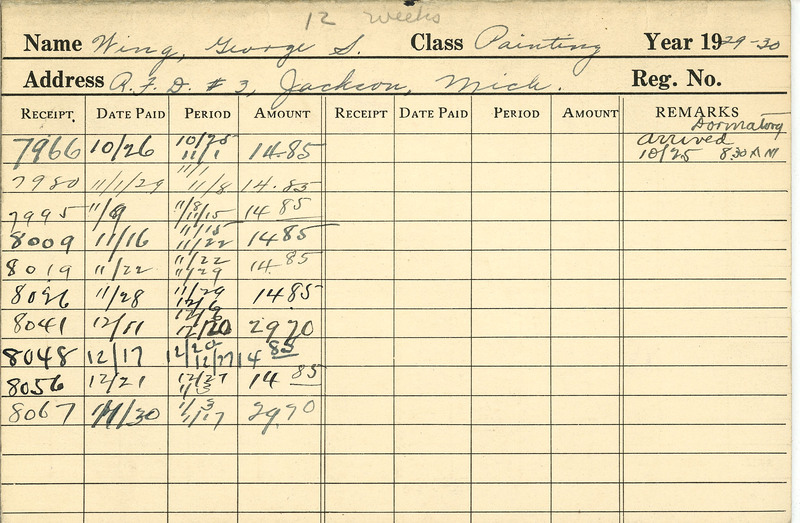 12 weeks
Name Wing, George S. Class Painting Year 1929-30
Address R.F.D. #3, Jackson, Mich. Reg. No.
RECEIPT. DATE PAID PERIOD AMOUNT RECEIPT DATE PAID PERIOD AMOUNT REMARKS
Dormatory
7966 10/26 10/25 11/1 14.85 arrived
10/25 8.30 AM
7980 11/1/29 11/1 11/8 14.85
7995 11/9 11/8 11/15 14 85
8009 11/16 11/15 11/22 14 85
8019 11/22 11/22 11/29 14.85
8026 11/28 11/29 12/6 14 85
8041 12/11 12/6 12/20 29 70
8048 12/17 12/20 12/27 14 85
8056 12/21 12/27 1/3 14 85
8067 /30 1/3 1/17 29.70